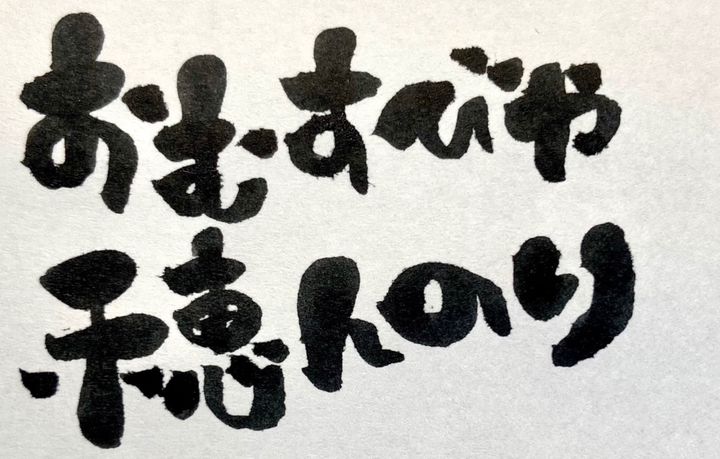 おむすびや
穂んのり